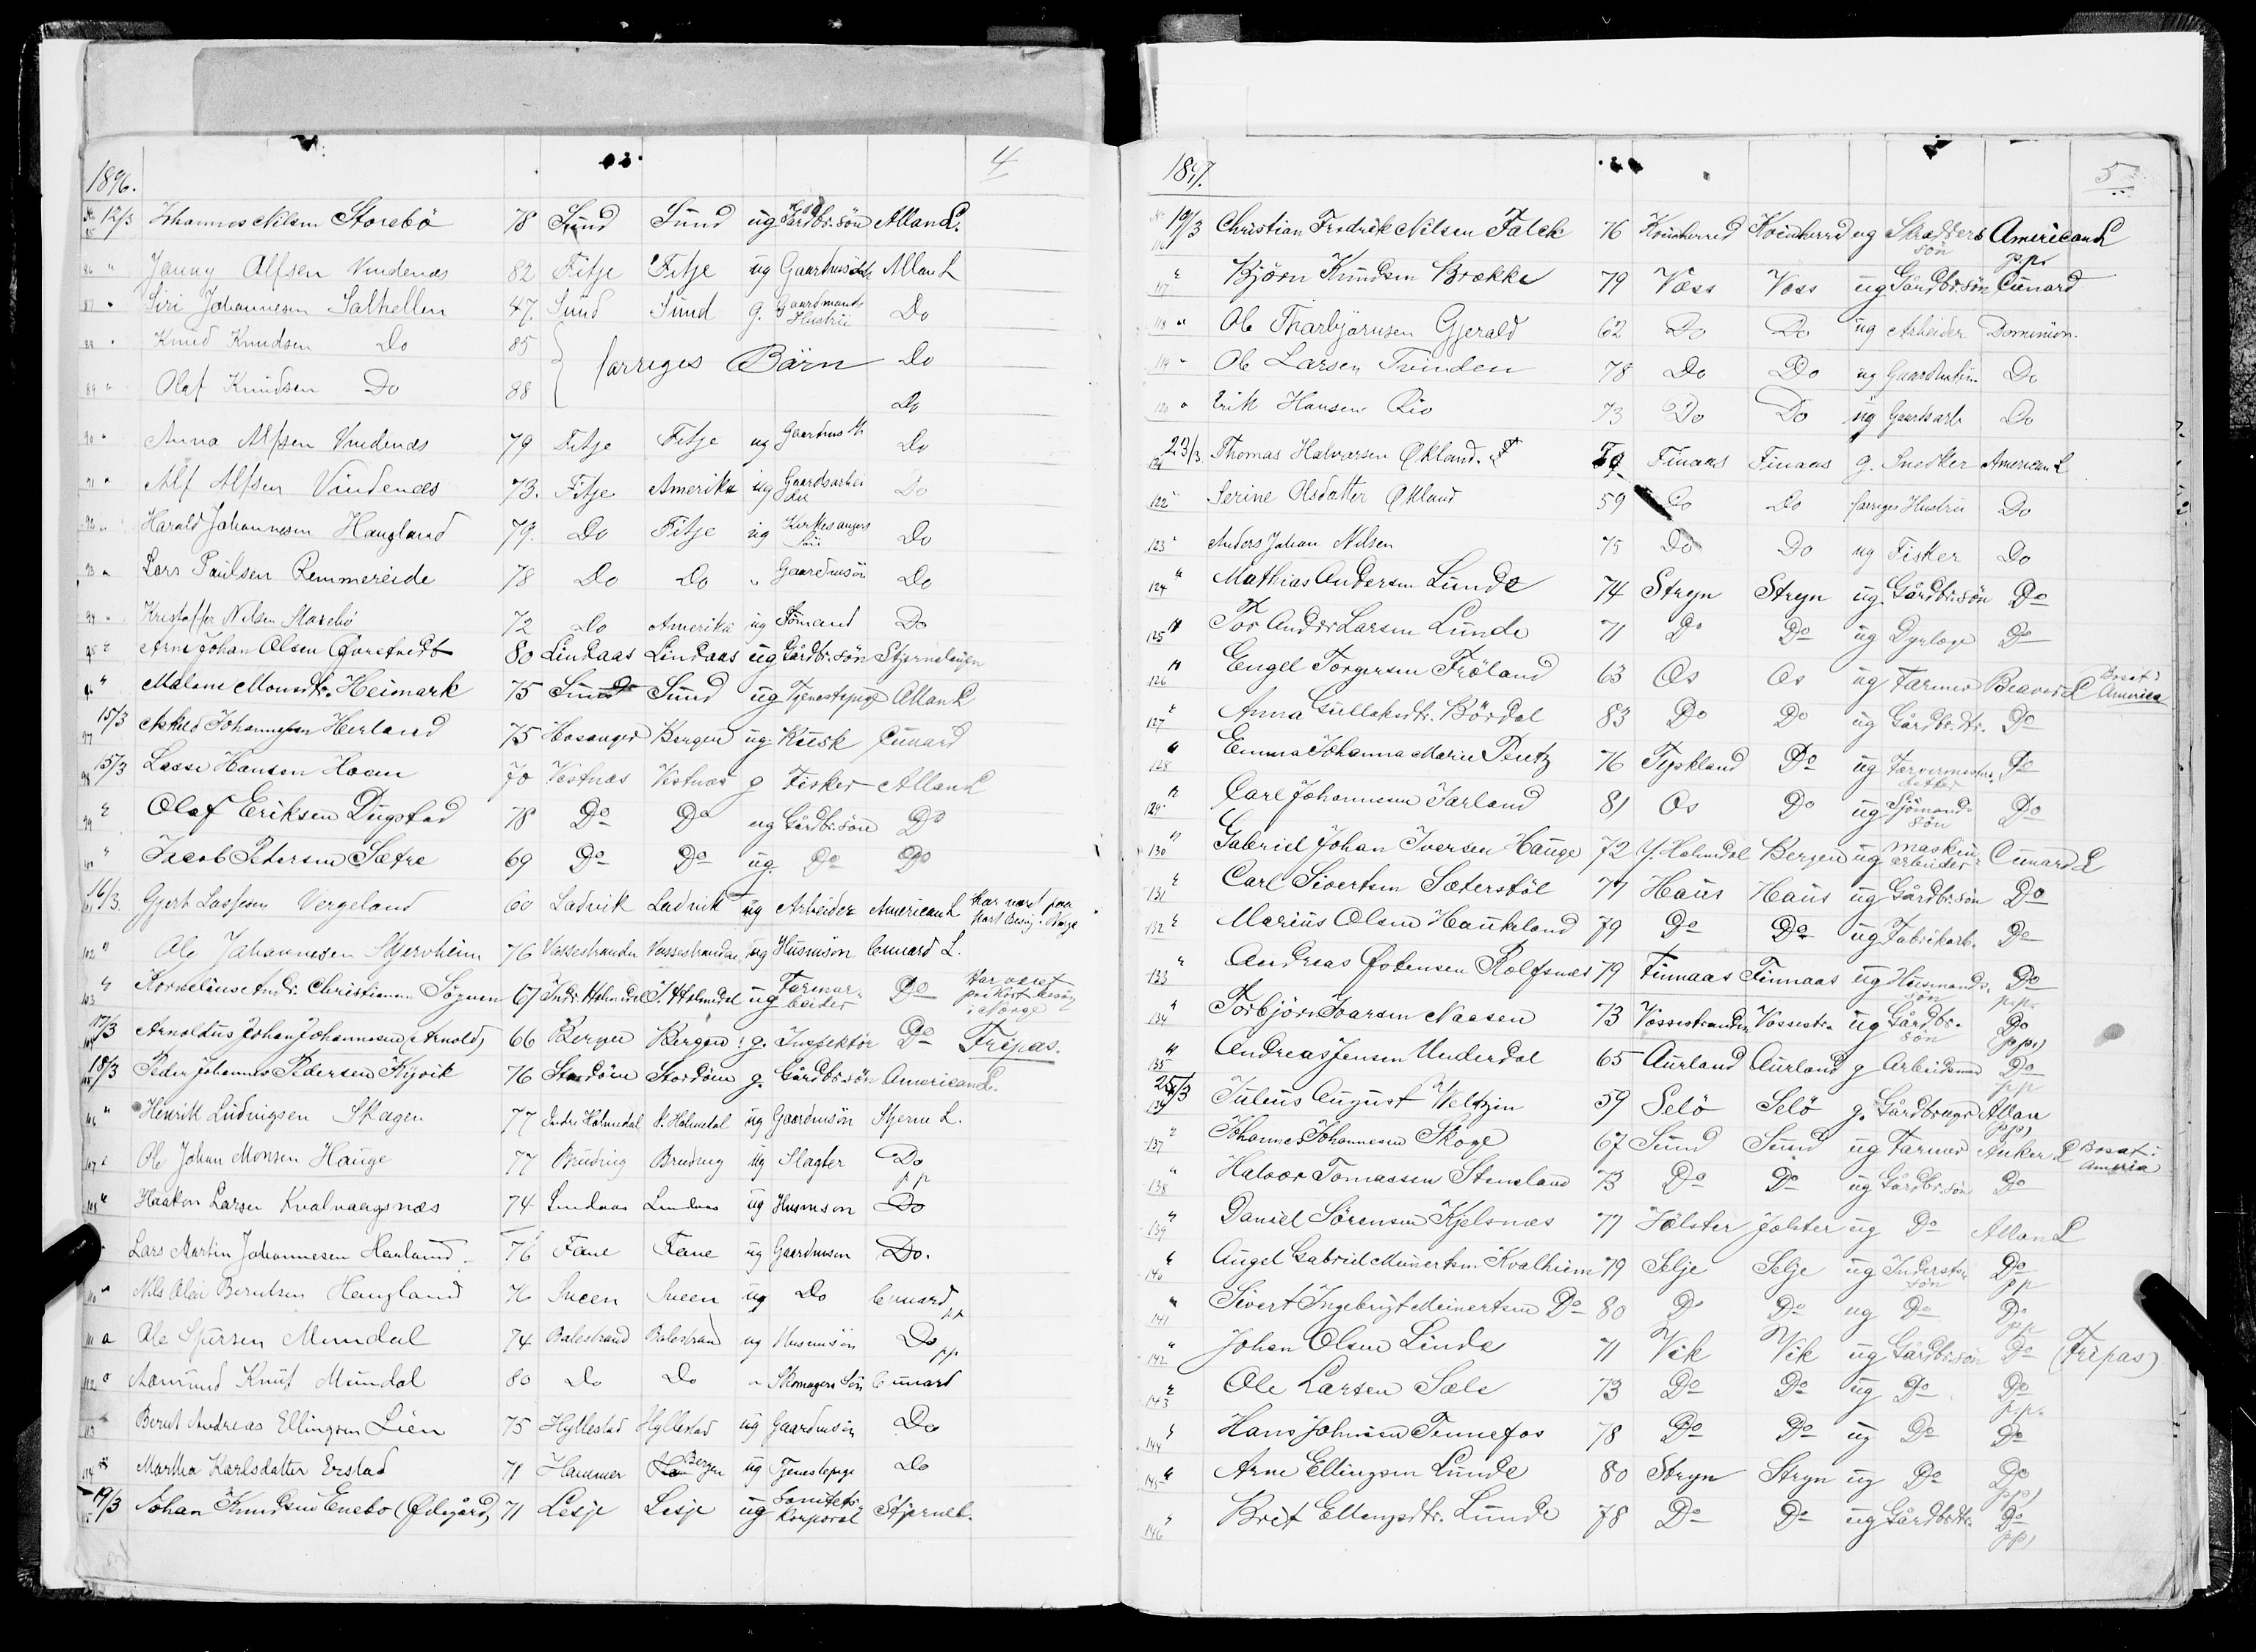 4
1896.
No 85 12/3 Johannes Nilsen Storebö 78 Sund Sund ug Gårdbr.sön Allan L.
86 " Jenny Alfsen Vindenæs 82 Fitje Fitje ug Allan L
87 " Siri Johannesen Salthellen 47. Sund Sund g. Gaardmands Hustrü Do
88 " Knud Knudsen Do 85 forriges Börn Do
89 " Olaf Knudsen Do 88 Do
90 " Anna Alfsen Vindenæs 79 Fitje Fitje ug Do
91 " Alf Alfsen Vindenæs 73. Fitje Amerika ug Gaardsarbei der Do
92 " Harald Johannesen Haugland 79. Do Fitje ug Kirkesangers Sön Do
93 " Lars Paulsen Remmereide 78 Do Do " Gaardmsön Do
94 " Kristoffer Nilsen Storebö 72 Do Amerika ug Sömand Do
95 " Arne Johan Olsen 80 Lindaas Lindaas ug Gårdbr.sön
96 " Malene Monsdtr. Heimark 75 Sund Sund ug Tjenestepige Allan L
97 15/3 Askild Johannessen Herland 75 Hosanger Bergen ug Kusk Cunard
98 15/3 Lasse Hansen Hoem 70 Vestnæs Vestnæs g Fisker Allan L
99 " Olaf Eriksen Dugstad 78 Do Do ug Gårdbr.sön Do
100 " Jacob Pedersen Sætre 69 Do Do ug. Do Do
101 16/3. Gjert Lassesen Vergeland 60 Ladvik Ladvik ug Arbeider American L Har været paa kort Besøg i Norge
102 " Ole Johannesen Skjervheim 76 Vossestranden Vossestranden ug Husmsön Cunard L.
103 " Kornelius Andr. Christiansen Sögnen 67 Indr. Holmedal I. Holmedal ug Farmar- beider Do Har været paa Kort Besøg i Norge
104 17/3 Arnoldus Johan Johannesen (Arnold) 66 Bergen Bergen g. Inspektör Do Fripas.
105 18/3 Peder Johannes Pedersen Kyvik 76 Stordöen Stordöen g. Gårdbr.sön American L.
106 " Henrik Ludvigsen Skagen 77 Indre Holmedal I. Holmedal ug Gaardmsön Stjerne L.
107 " Ole Johan Monsen Hauge 77 Bruvig Bruvig ug Slagter Do pp
108 " Haakon Larsen Kvalvaagsnæs 74 Lindaas Lindaas ug Husmson Do
Lars Martin Johannesen Hauland 76 Fane Fane ug Gaardmsön Do.
110 " Nils Olai Berntsen Haugland 76 Sveen Sveen ug Do Cunard pp
111 " Ole Sjursen Mundal 74 Balestrand Balestrand ug Husmsön Do pp
112 " Aamund Knut Mundal 80 Do Do " Skomagers Sön Cunard
113 " Bernt Andreas Ellingsen Lien 75 Hyllestad Hyllestad ug Gaardmsön Do
114 " Martha Karlsdatter Erstad 71 Hammer Bergen ug Tjenestepige Do
115 19/3 Johan Knudsen Enebo (Ødegård) 71 Lesje Lesje ug Sanitets- Korporal Stjernel.
5
1897.
No 116 19/3 Christian Fredrik Nilsen Falck 76 Kvinherred Kvinherred ug Skrædders sön American L p.p.
117 " Björn Knudsen Brække 79 Voss Voss ug Gårdbr.sön Cunard
118 " Ole Thorbjörnsen Gjerald 62 Do Do ug Arbeider Dominion.
119 " Ole Larsen Tvinden 78 Do Do ug Gaardmsön Do
120 " Erik Hansen Rio 73 Do Do ug Gaardsarb Do
121 23/3. Thomas Halvorsen Økland. Finaas Finaas g. Snedker American L
122 " Serine Olsdatter Økland 59 Do Do forriges Hustru Do
123 " Anders Johan Nilsen 75 Do Do ug Fisker Do
124 " Mathias Andersen Lunde 74 Stryn Stryn ug. Gårdbr.sön Do
125 " Tor Andr. Larsen Lunde 71 Do Do ug Dyrlæge Do
126 " Engel Torgersen Fröland 63 Os Os ug Farmer Beaver L Bosat i America
127 " Anna Gullaksdtr. Bördal 83 Do Do ug Gårdbr.dtr. Do
128 " Emma Johanna Marie Pentz 76 Tyskland Do ug Farvermesters datter Do
129 " Carl Johannesen Jarland 81 Os Do ug Sjömands sön Do
130 " Gabriel Johan Iversen Hauge 72 Y. Holmedal Bergen ug maskin- arbeider Cunard L
131 " Carl Sivertsen Sæterstöl 77 Haus Haus ug Gårdbr.sön Do
132 " Marius Olsen Haukeland 79 Do Do ug Fabrikarb. Do
133 " Andreas Østensen Rolfsnes 79 Finnaas Finnaas ug Husmands- sön Do p.p.
134 " Torbjörn Ivarsen Naasen 73 Vossestranden Vossestr. ug Gårdbr. sön Do (pp.)
135 " Andreas Jensen Underdal 65 Aurland Aurland g Arbeidsmand Do pp
136 25/3 Julius August Weltzin 59 Selö Selö g. Gårdbruger Allan pp)
137 " Johannes Johannesen Skoge 67 Sund Sund ug Farmer Anker L Bosat i America
138 " Halvor Tomassen Steinsland 73 Do Do ug Gårdbr.sön Do
139 " Daniel Sörensen Kjelsnæs 77 Jölster Jölster ug Do Allan L
140 " Angel Gabriel Meinertsen Kvalheim 79 Selje Selje ug Inderst- sön Do pp
141 " Sivert Ingebrigt Meinertsen Do 80 Do Do ug Do Do pp
142 " Johan Olsen Linde 71 Vik Vik ug Gårdbr.sön Do (Fripas)
143 " Ole Larsen Sæle 73 Do Do ug Do Do p.p.
144 " Hans Johnsen Tennefos 78 Do Do ug Do Do
145 " Arne Ellingsen Lunde 80 Stryn Stryn ug Do Do pp)
146 " Brit Ellingsdtr. Lunde 78 Do Do ug Gårdbr.dtr. Do pp)